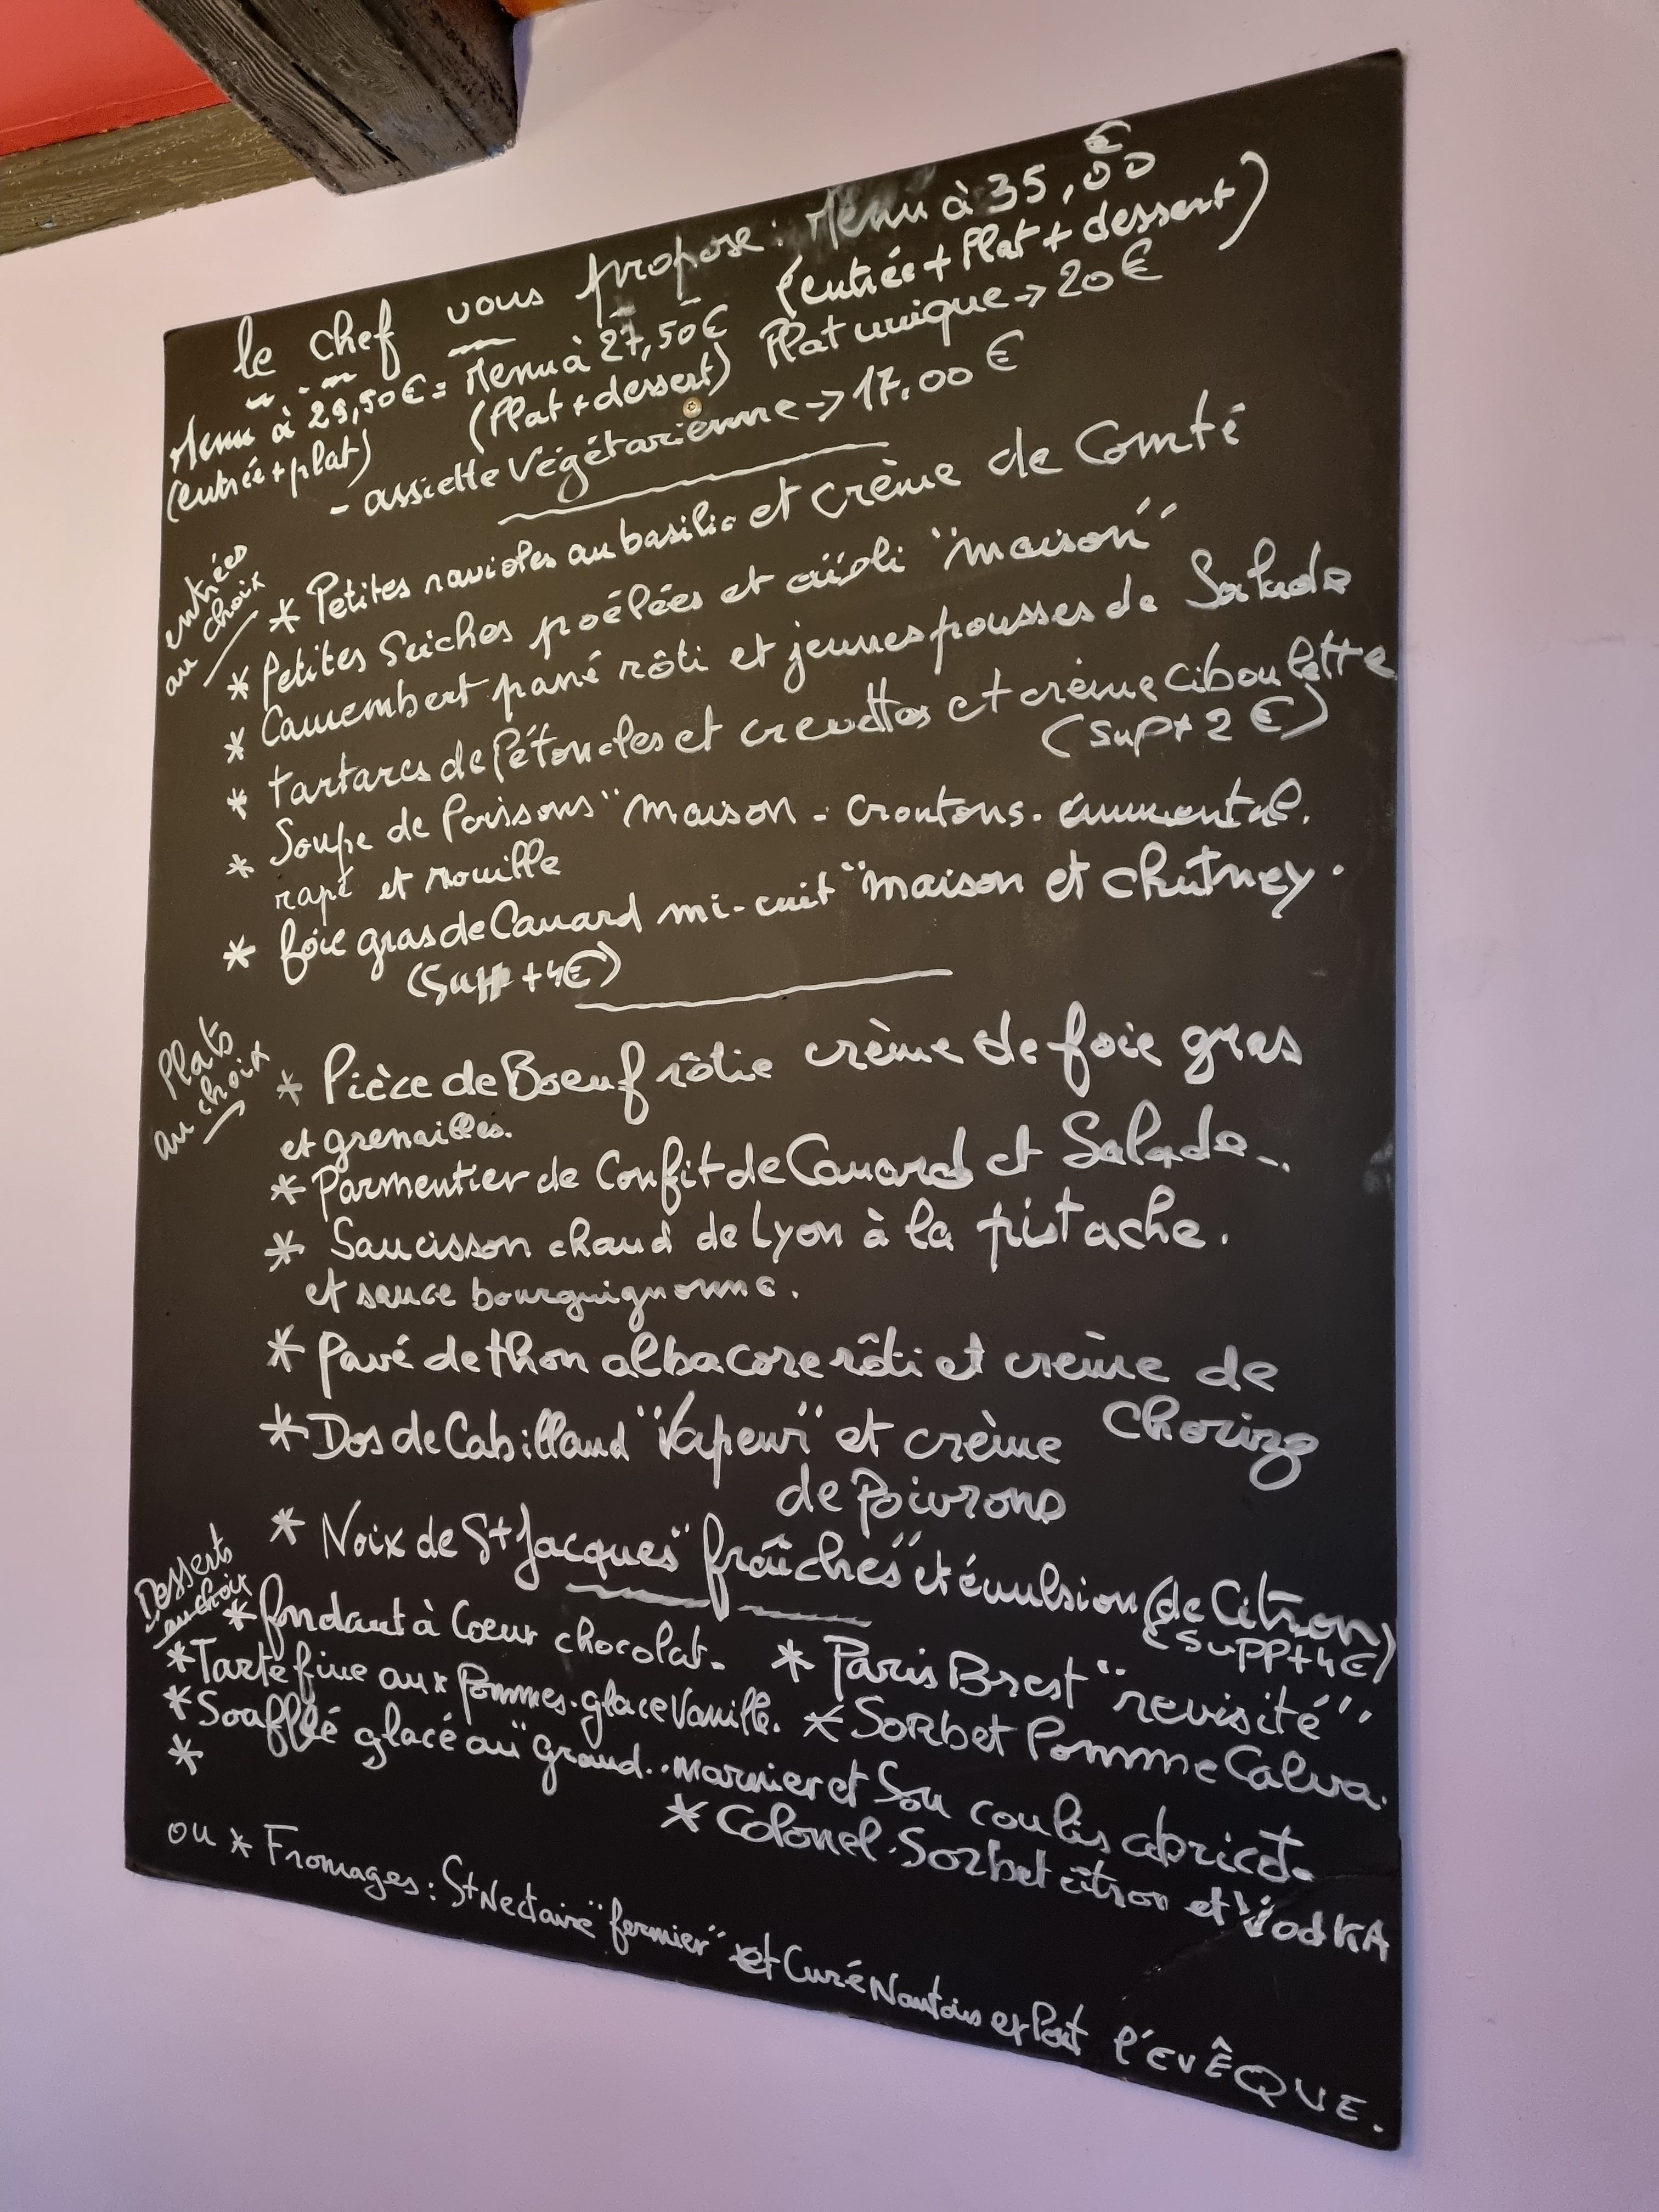 le chef vous propose : Menu à 35,00 €
(entrée + Plat + dessert)
Menu à 29,50€ = Menu à 27,50€
(entrée + plat) (Plat + dessert) Plat unique -> 20€
- assiette Végétarienne -> 17.00 €
entrées
au choix
* Petites ravioles au basilic et crème de Comté
* Petites Seiches poélées et aïoli "maison"
* Camembert pané rôti et jeunes pousses de Salade
* tartares de Pétoncles et crevettes et crème ciboulette
(sup + 2 €)
* Soupe de Poissons "maison - croutons. emmental.
rapé et rouille
* foie gras de Canard mi-cuit "maison et chutney.
(Supp +4€)
Plats
au choix
* Pièce de Boeuf rôtie crème de foie gras
et grenailles.
* Parmentier de Confit de Canard et Salade..
* Saucisson chaud de Lyon à la pistache.
et sauce bourguignonne.
* Pavé de thon albacore rôti et crème de
Chorizo
* Dos de Cabillaud "Vapeur" et crème
de Poivrons
* Noix de St Jacques "fraîches" et émulsion de Citron
(supp+4€)
Desserts
au choix
* fondant à Coeur chocolat. * Paris Brest "revisité"
* Tarte fine aux Pommes. glace Vanille. * Sorbet Pomme Calva.
* Soufflé glacé au "Grand..marnier et Son coulis abricot.
* * Colonel. Sorbet citron et Vodka
ou * Fromages : St Nectaire "fermier" et Curé Nantais et Pont l'évÊQUE.